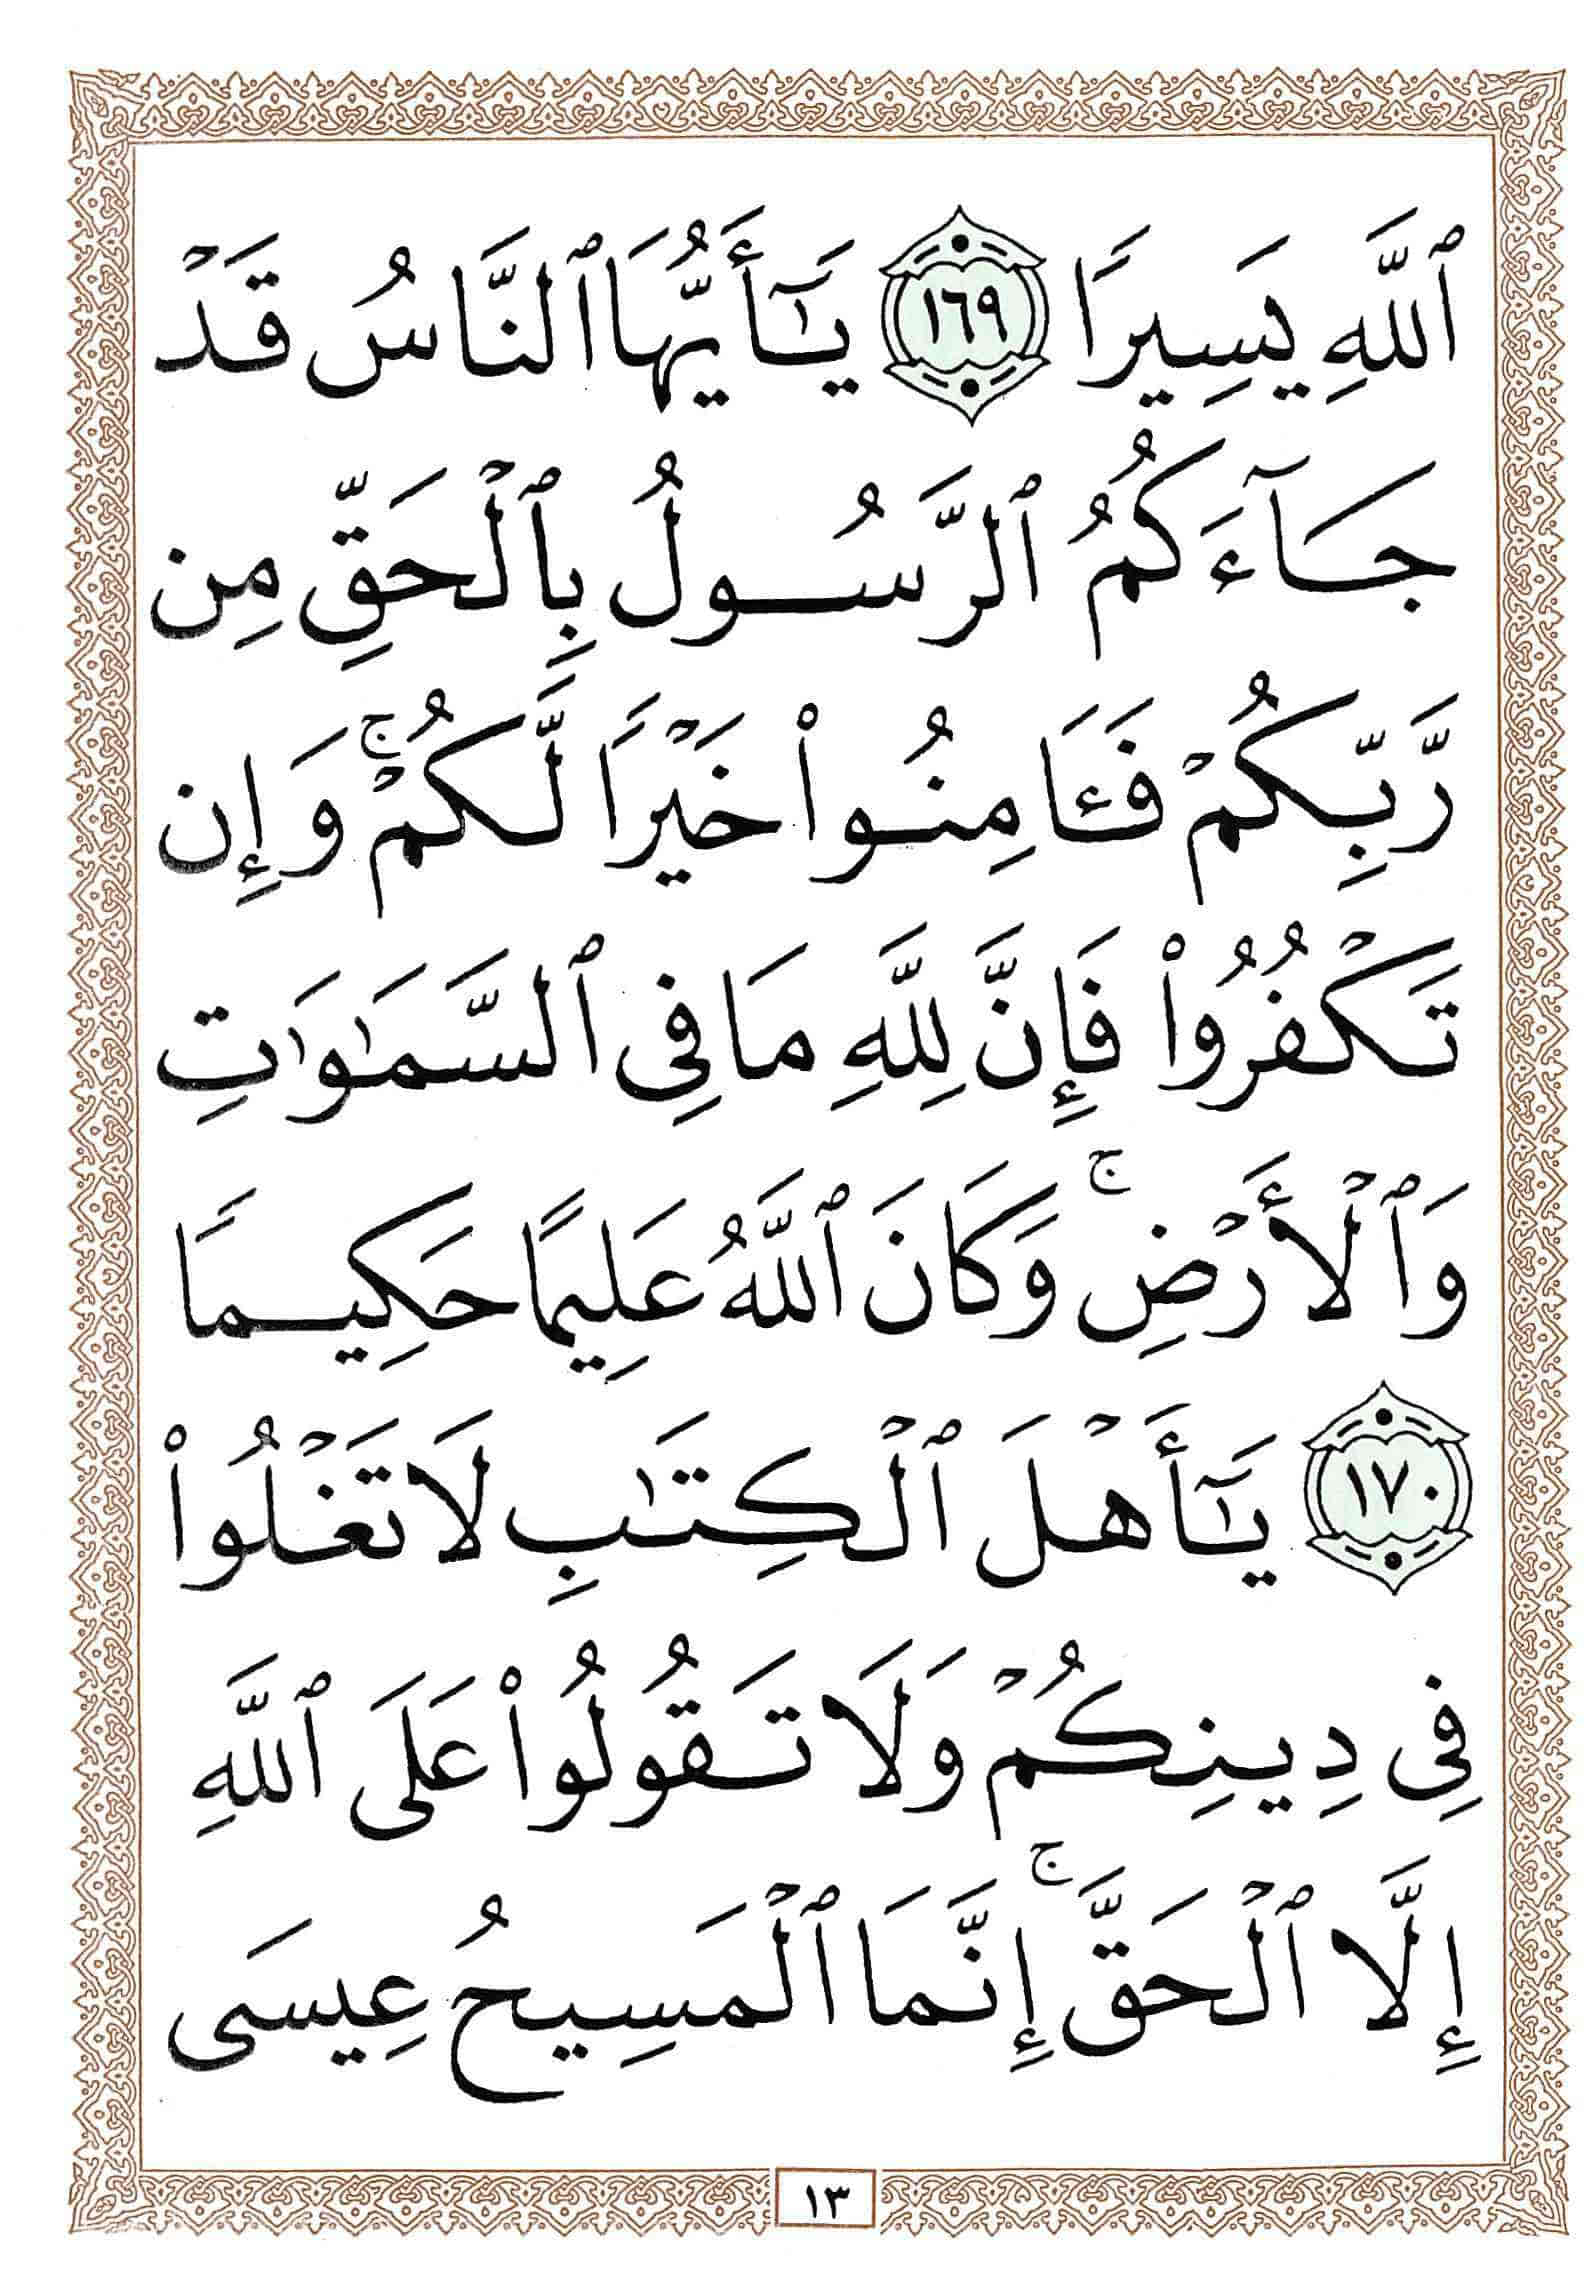 ٱللَّهِ يَسِيرًا ١٦٩ يَـٰٓأَيُّهَا ٱلنَّاسُ قَدْ
جَآءَكُمُ ٱلرَّسُولُ بِٱلْحَقِّ مِن
رَّبِّكُمْ فَـَٔامِنُوا۟ خَيْرًا لَّكُمْ ۚ وَإِن
تَكْفُرُوا۟ فَإِنَّ لِلَّهِ مَا فِى ٱلسَّمَـٰوَٰتِ
وَٱلْأَرْضِ ۚ وَكَانَ ٱللَّهُ عَلِيمًا حَكِيمًا
١٧٠ يَـٰٓأَهْلَ ٱلْكِتَـٰبِ لَا تَغْلُوا۟
فِى دِينِكُمْ وَلَا تَقُولُوا۟ عَلَى ٱللَّهِ
إِلَّا ٱلْحَقَّ ۚ إِنَّمَا ٱلْمَسِيحُ عِيسَى
١٣